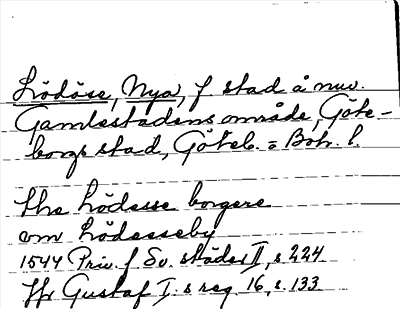 Lödöse, Nya, f. stad å nuv.
Gamlestadens område, Göte-
borgs stad, Göteb. o Boh. l.
the Lödesse borgere
om Lödesseby
1544 Priv. f Sv. städer II, s. 224
Hr Gustaf I:s reg. 16, s. 133